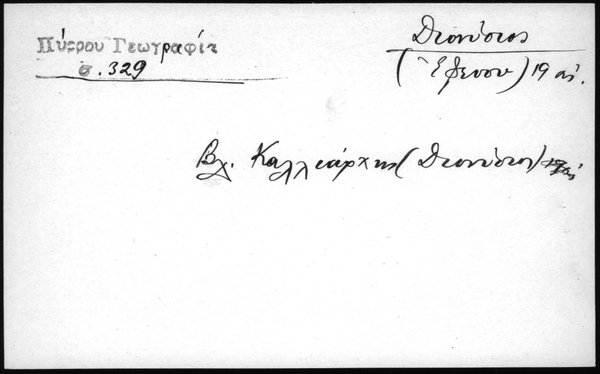 Πύρρου Γεωγραφία
σ. 329
Διονύσιος
(Ἐφέσου) 19 αἰ.
Βλ. Καλλιάρχης (Διονύσιος)